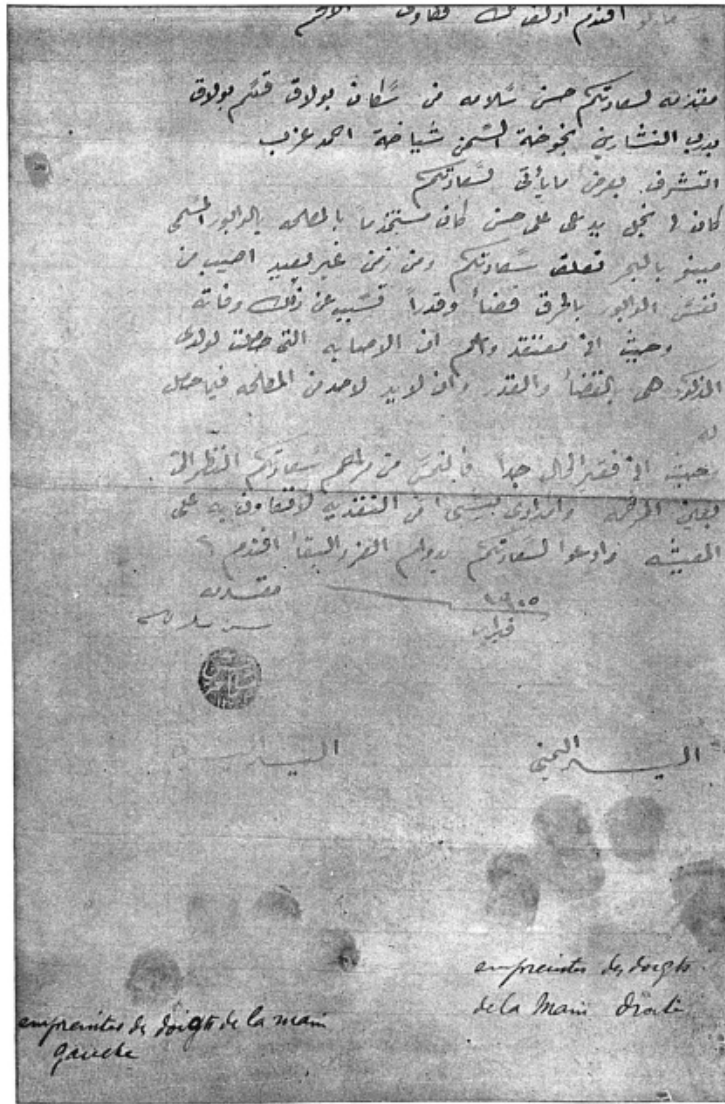 افندم
مقدمه لسعادتكم حسن سلامه من سكان بولاق قسم بولاق
بدرب النشارين بخوخة السمن شياخة احمد عزب
التشرف بعرض ما يأتى لسعادتكم
كان لى نجل يدعى على حسن كان مستخدماً بالمصلحه بالوابور المسمى
مينو بالبحر تعلق سعادتكم ومن زمن غير بعيد اصيب من
نفس الوابور بالحرق قضأ وقدراً فتسبب عن ذلك وفاته
وحيث انى معتقد ان الاصابه التى حصلت لولدى
المذكور هى بالقضأ والقدر وان لا يد لاحد من المصلحه فيما حصل
له
وحيث انى فقير الحال جداً فألتمس من مراحم سعادتكم النظر الىّ
بعين المرحمه بشىء من النقديه لاتعاون به على
المعيشه وادعوا لسعادتكم بدوام العز والبقأ افندم
مقدمه
فبراير
اليد اليمنى
اليد
empreintes des doigts
de la Main droite
empreintes des doigts de la main
gauche